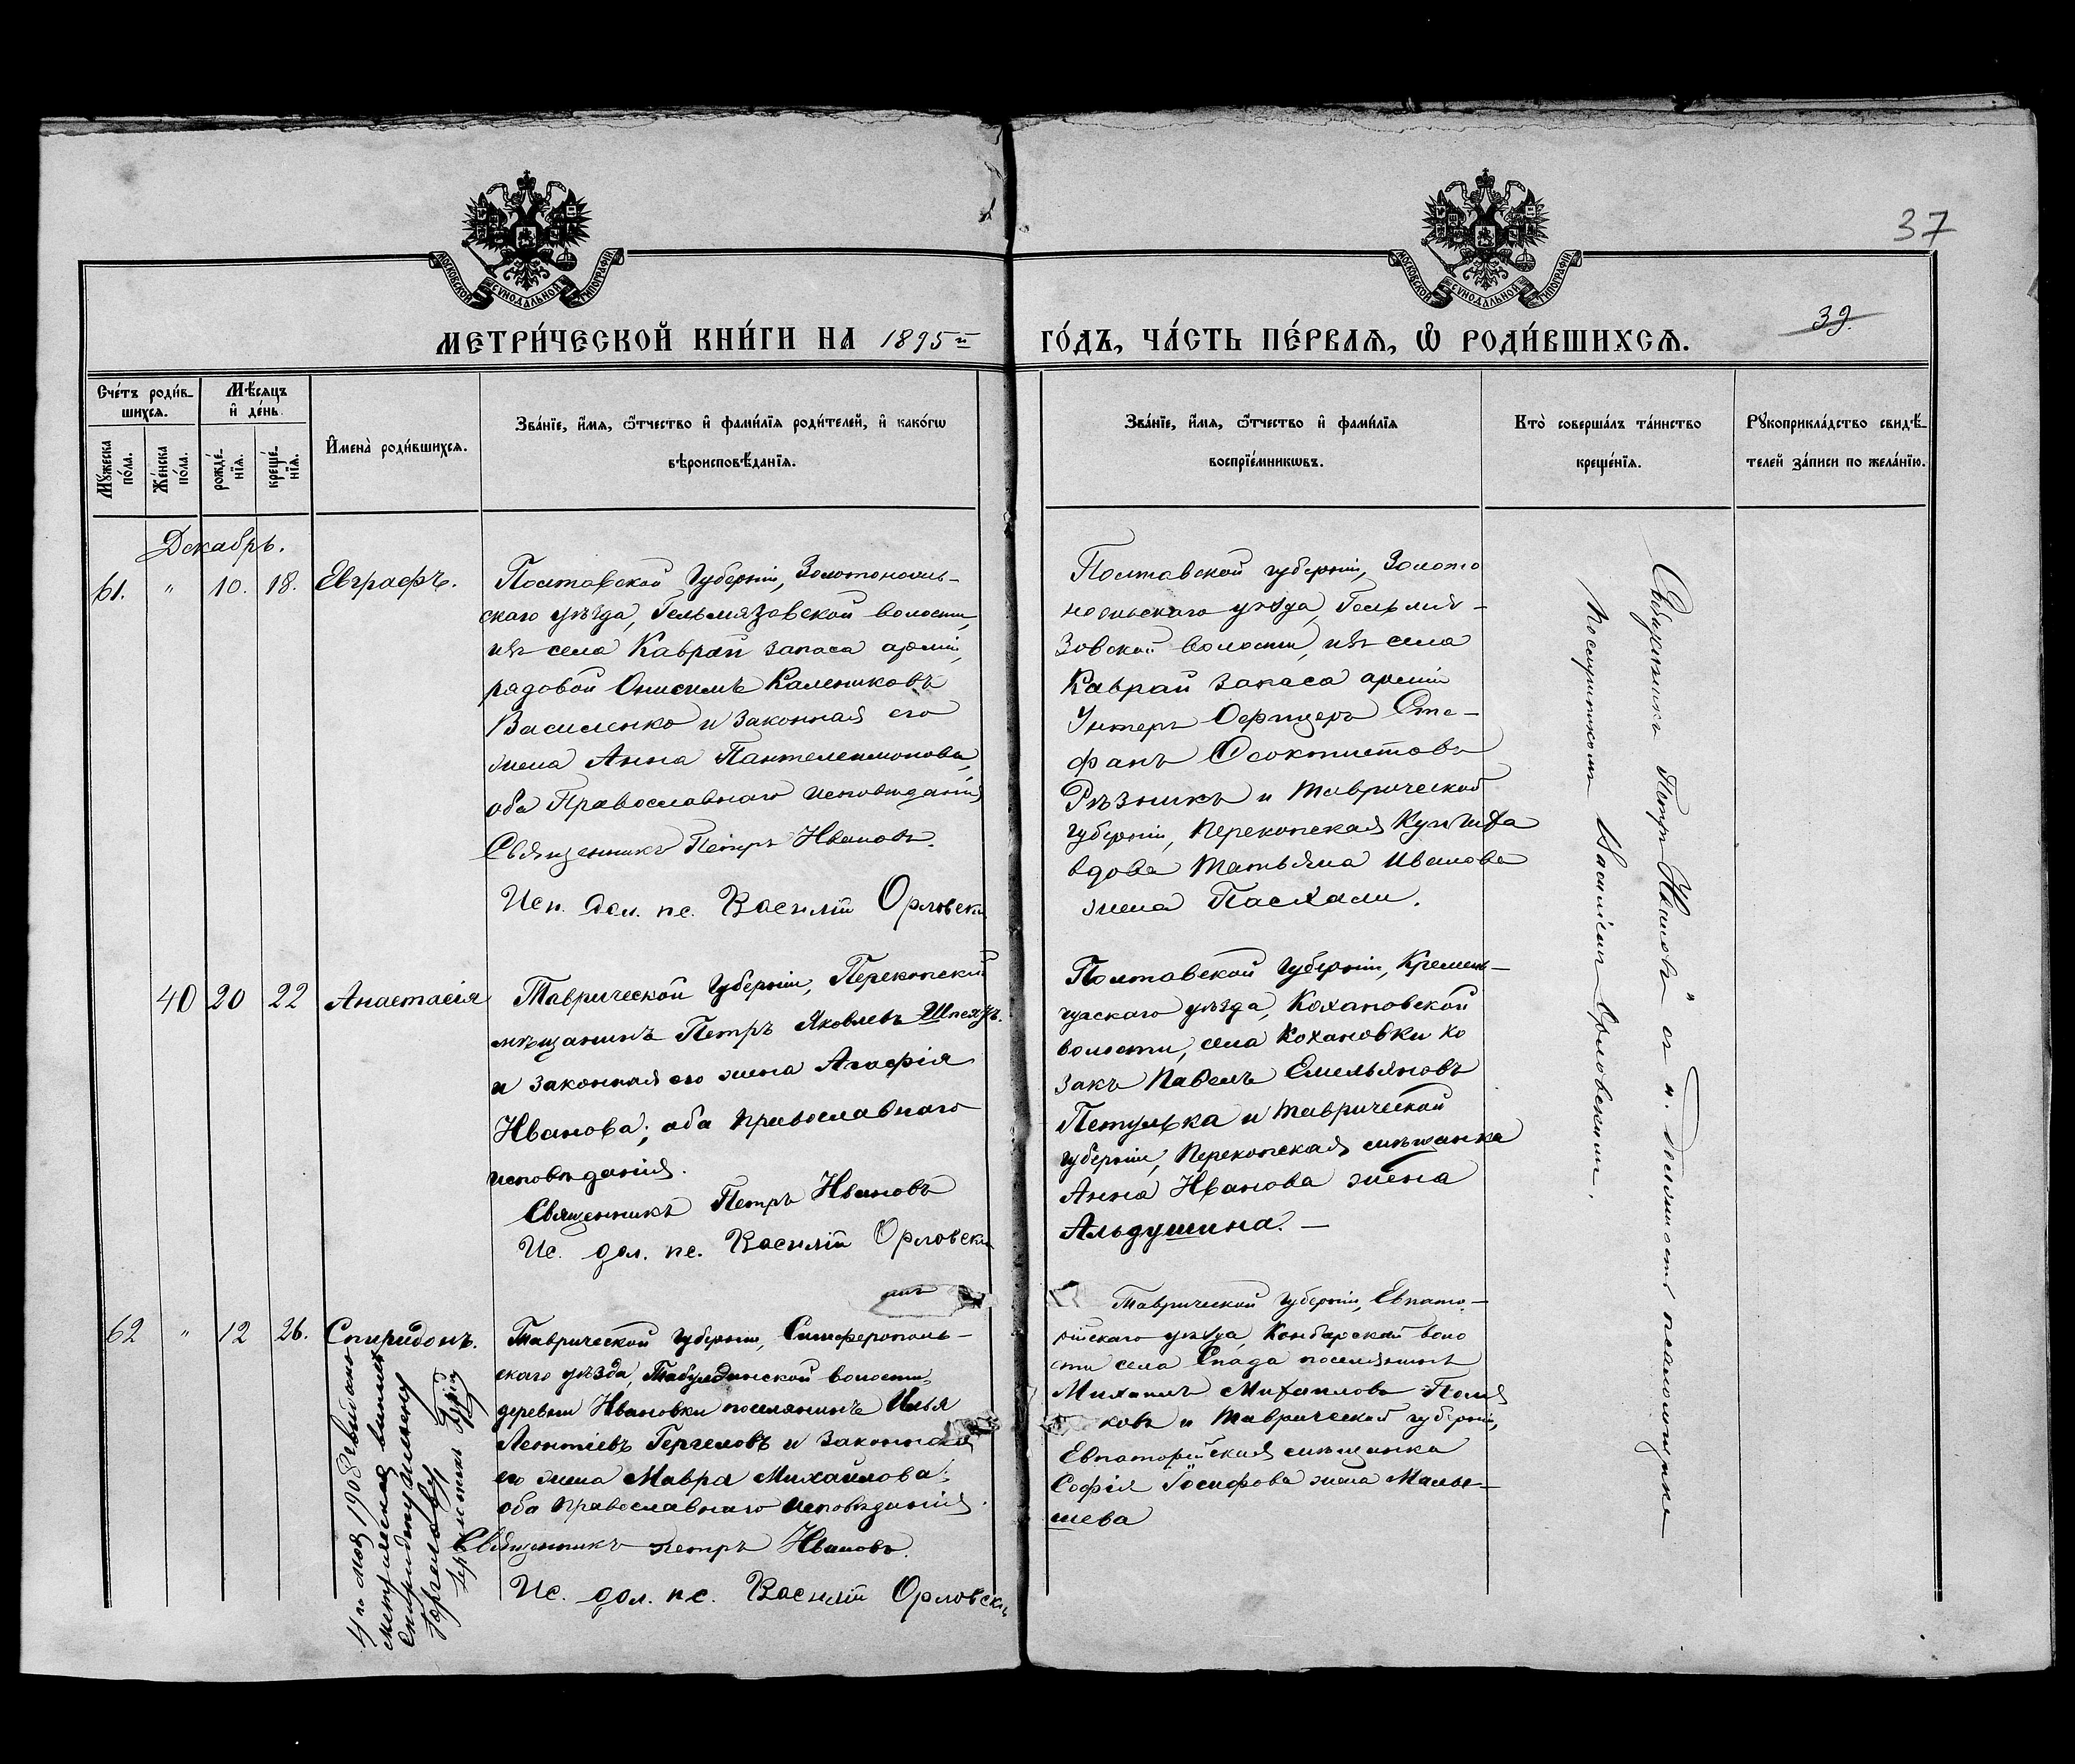 37
39.
МОСКОВСКОЙ СУНОДАЛЬНОЙ ТИПОГРАФІИ
МОСКОВСКОЙ СУНОДАЛЬНОЙ ТИПОГРАФІИ
МЕТРИ́ЧЕСКОЙ КНИ́ГИ НА 1895й
ГО́ДЪ, ЧА́СТЬ ПЕ́РВАѦ, Ѽ РОДИ́ВШИХСѦ.
Сче́тъ роди́в-
шихсѧ.
Мѣ́сѧцъ
и҆ де́нь.
Мꙋ́жеска
по́ла.
Же́нска
по́ла.
рожде́-
нїѧ.
креще́-
нїѧ.
И҆мена̀ роди́вшихсѧ.
Зва́нїе, и҆́мѧ, ѻ҆́тчество и҆ фами́лїѧ роди́телей, и҆ како́гѡ
вѣроисповѣ́данїѧ.
Зва́нїе, и҆́мѧ, ѻ҆́тчество и҆ фами́лїѧ
воспрїе́мникѡвъ.
Кто̀ соверша́лъ та́инство
креще́нїѧ.
Рꙋкоприкла́дство свидѣ́-
телей за́писи по жела́нїю.
Декабрь.
61. " 10. 18. Евграфъ.
Полтавской Губерніи, Золотоношь-
скаго уѣзда, Гельмязовской волости,
изъ села Каврай запаса арміи,
рядовой Онисимъ Калениковъ
Василенко и законная его
жена Анна Пантелеимонова,
оба Православнаго исповѣданія
Священникъ Петръ Ивановъ.
Исп. дол. пс. Василій Орловскій
Полтавской губерніи, Золото
ношьскаго уѣзда, Гельмя-
зовской волости, изъ села
Каврай запаса арміи
Унтеръ Офицеръ Сте-
фанъ Феоктистовъ
Рѣзникъ и Таврической
губерніи, Перекопская
вдова Татьяна Иванова
жена Пасхали.
40 20 22 Анастасія
Таврической Губерніи, Перекопскій
мѣщанинъ Петръ Яковлевъ
и законная его жена Агафія
Иванова, оба православнаго
исповѣданія.
Священникъ Петръ Ивановъ
Ис. дол. пс. Василій Орловскій
Полтавской Губерніи, Кремен-
чугскаго уѣзда, Кохановской
волости, села Кохановки ко
закъ Павелъ Емельяновъ
Петулька и таврической
губерніи, Перекопская мѣщанка
Анна Иванова жена
Альдушина. —
62 " 12 26. Спиридонъ.
Таврической губерніи, Симферополь-
скаго уѣзда, Табулдинской волости,
деревни Ивановки поселянинъ Илья
Леонтіевъ Гергеловъ и законная
его жена Мавра Михайлова,
оба православнаго исповѣданія.
Священникъ Петръ Ивановъ.
Ис. дол. пс. Василій Орловскій
Таврической губерніи, Евпато-
рійскаго уѣзда, Конбарской воло
сти села Спада поселянинъ
Михаилъ Михайловъ Поля
ковъ и Таврической губерніи,
Евпаторійская мѣщанка
Софія Іосифова жена Малы-
шева
4го мая 1908г выдано
метрическая выпись
Спиридону Ильину
Гергелову
Священникъ Петръ Ивановъ съ и. должность псаломщика
послушникомъ Василіемъ Орловскимъ.